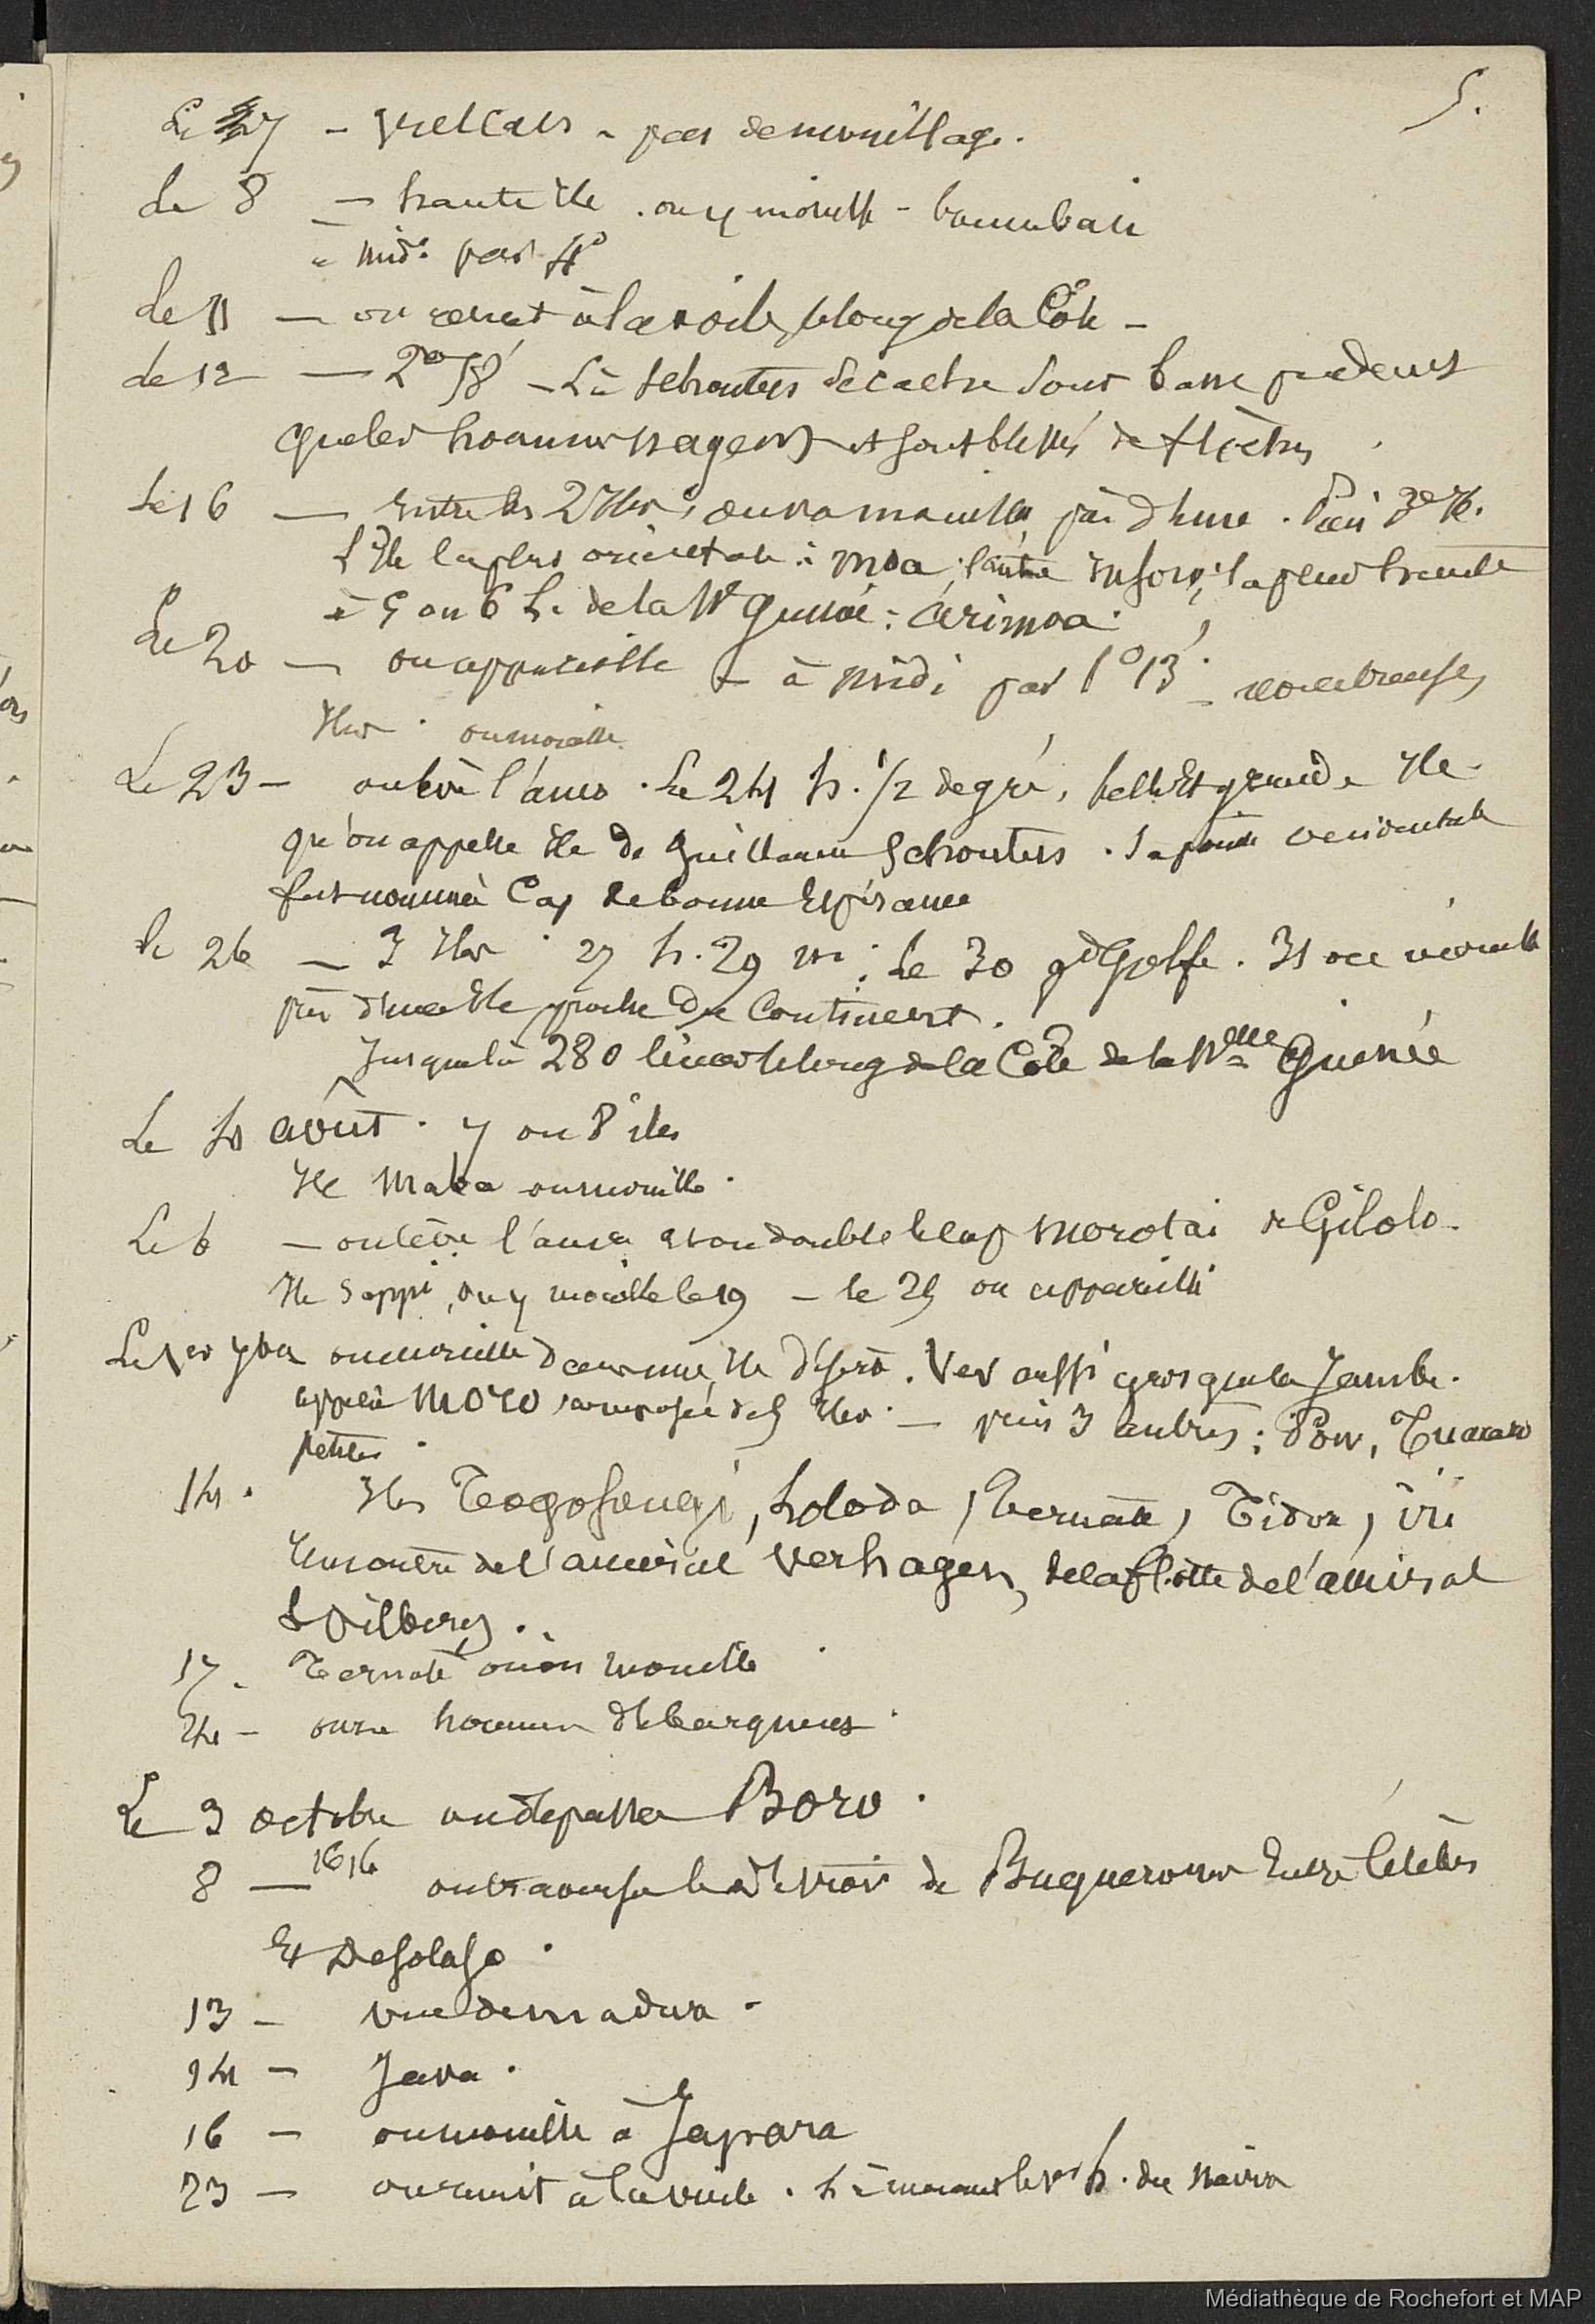 5.
Le 7 - Vulcans - pas de mouillage.
Le 8 — haute île . on y mouille -
à midi par 4°
Le 11 — on remet à la voile, le long de la Côte -
Le 12 — 2° 58' - Là Schouten
que les hommes nagent et sont blessés de flèches
Le 16 — entre les 2 Iles, on va mouiller près d'une .
l'Ile la plus orientale : Moa ; l'autre Insou ; la plus haute
à 5 ou 6 h. de la Nle Guinée : Arimoa .
Le 20 — on appareille - à midi par 1° 13' - nombreuses
Iles . on mouille
Le 23 — on lève l'ancre . Le 24 h. 1/2 degré, belle et grande Ile
qu'on appelle île de Guillaume Schouten . Sa pointe occidentale
fut nommée Cap de bonne Espérance
Le 26 — 3 Iles . 27 h. 29 m ; Le 30 gd Golfe . 31 on mouille
près d'une Ile proche du Continent .
Jusque là 280 lieues le long de la Côte de la Nlle Guinée
Le 4 août . 7 ou 8 îles
Ile Maba on mouille .
Le 6 — on lève l'ancre et on double le cap Morotai de Gilolo -
Ile Soppi, on y mouille le 19 — le 25 on appareille
Le 1er 7bre on mouille dans une Ile déserte . Ver aussi gros que la Jambe .
appelée Moro composée de 5 Iles . — puis 3 autres :
petites .
14 . Iles Teogofongi, Loloda, Ternate, Tidor, ici
rencontre de l'amiral Verhagen, de la flotte de l'amiral
Spilberg .
17 - Ternate où on mouille
24 - onze hommes débarquent .
Le 3 octobre on dépasse Boro .
8 — 1616 on traverse le détroit de Buquerones entre Célèbes
Et Desolaso .
13 - vue de Madura .
14 - Java .
16 - on mouille à Japara
23 - on remit à la voile . du Navire
Médiathèque de Rochefort et MAP